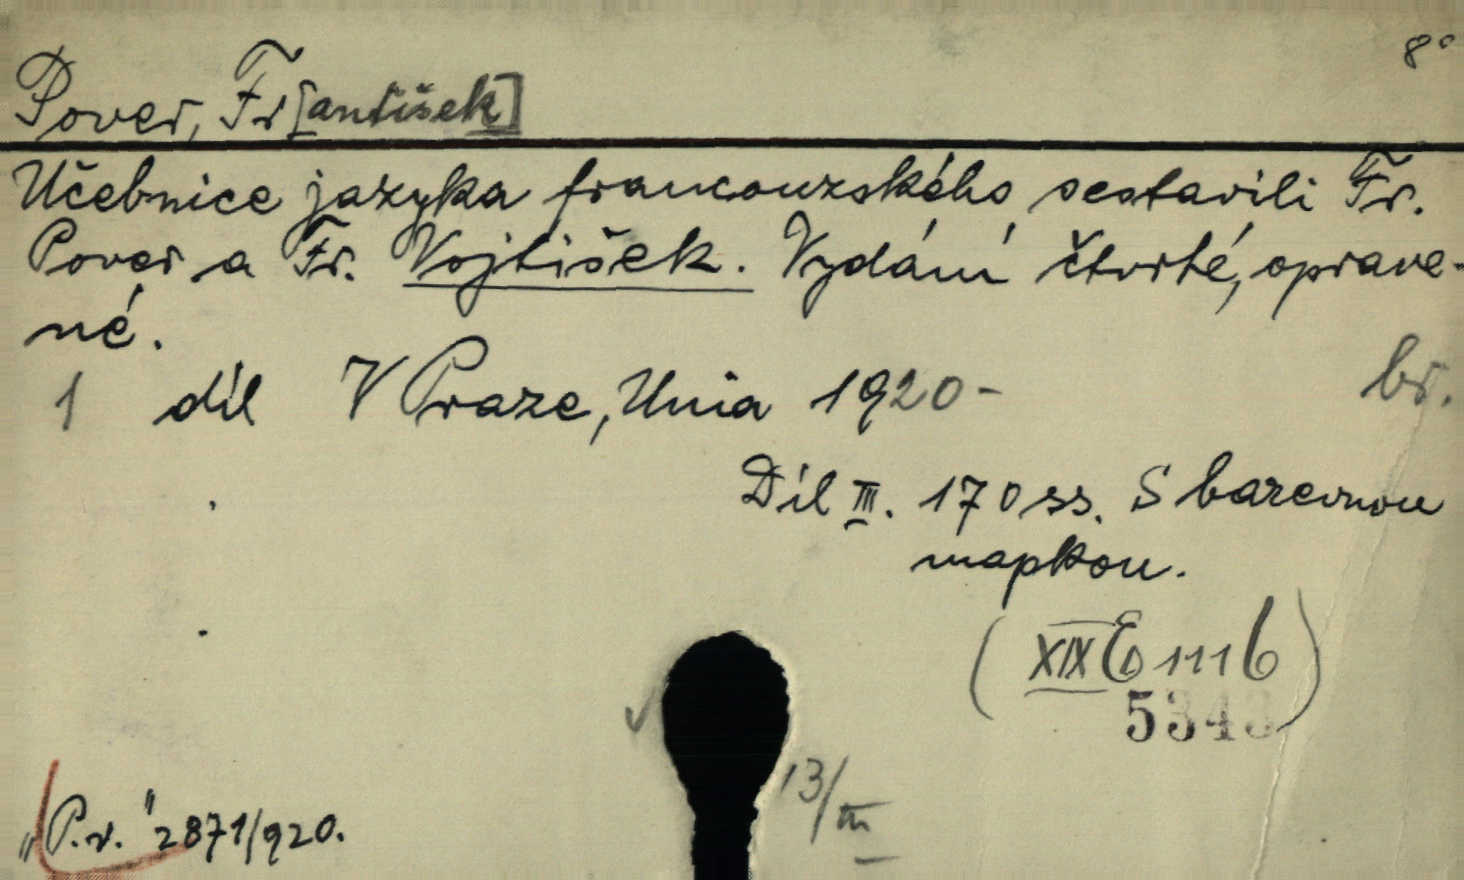 8°
Pover, Fr[antišek]
Učebnice jazyka francouzského sestavili Fr.
Pover a Fr. Vojtíšek. Vydání čtvrté, oprave-
né.
1 díl V Praze, Unia 1920- br.
Díl III. 170 ss. S barevnou
mapkou.
(XIX E 111 b)
5343
13/III
„P.v." 2871/920.